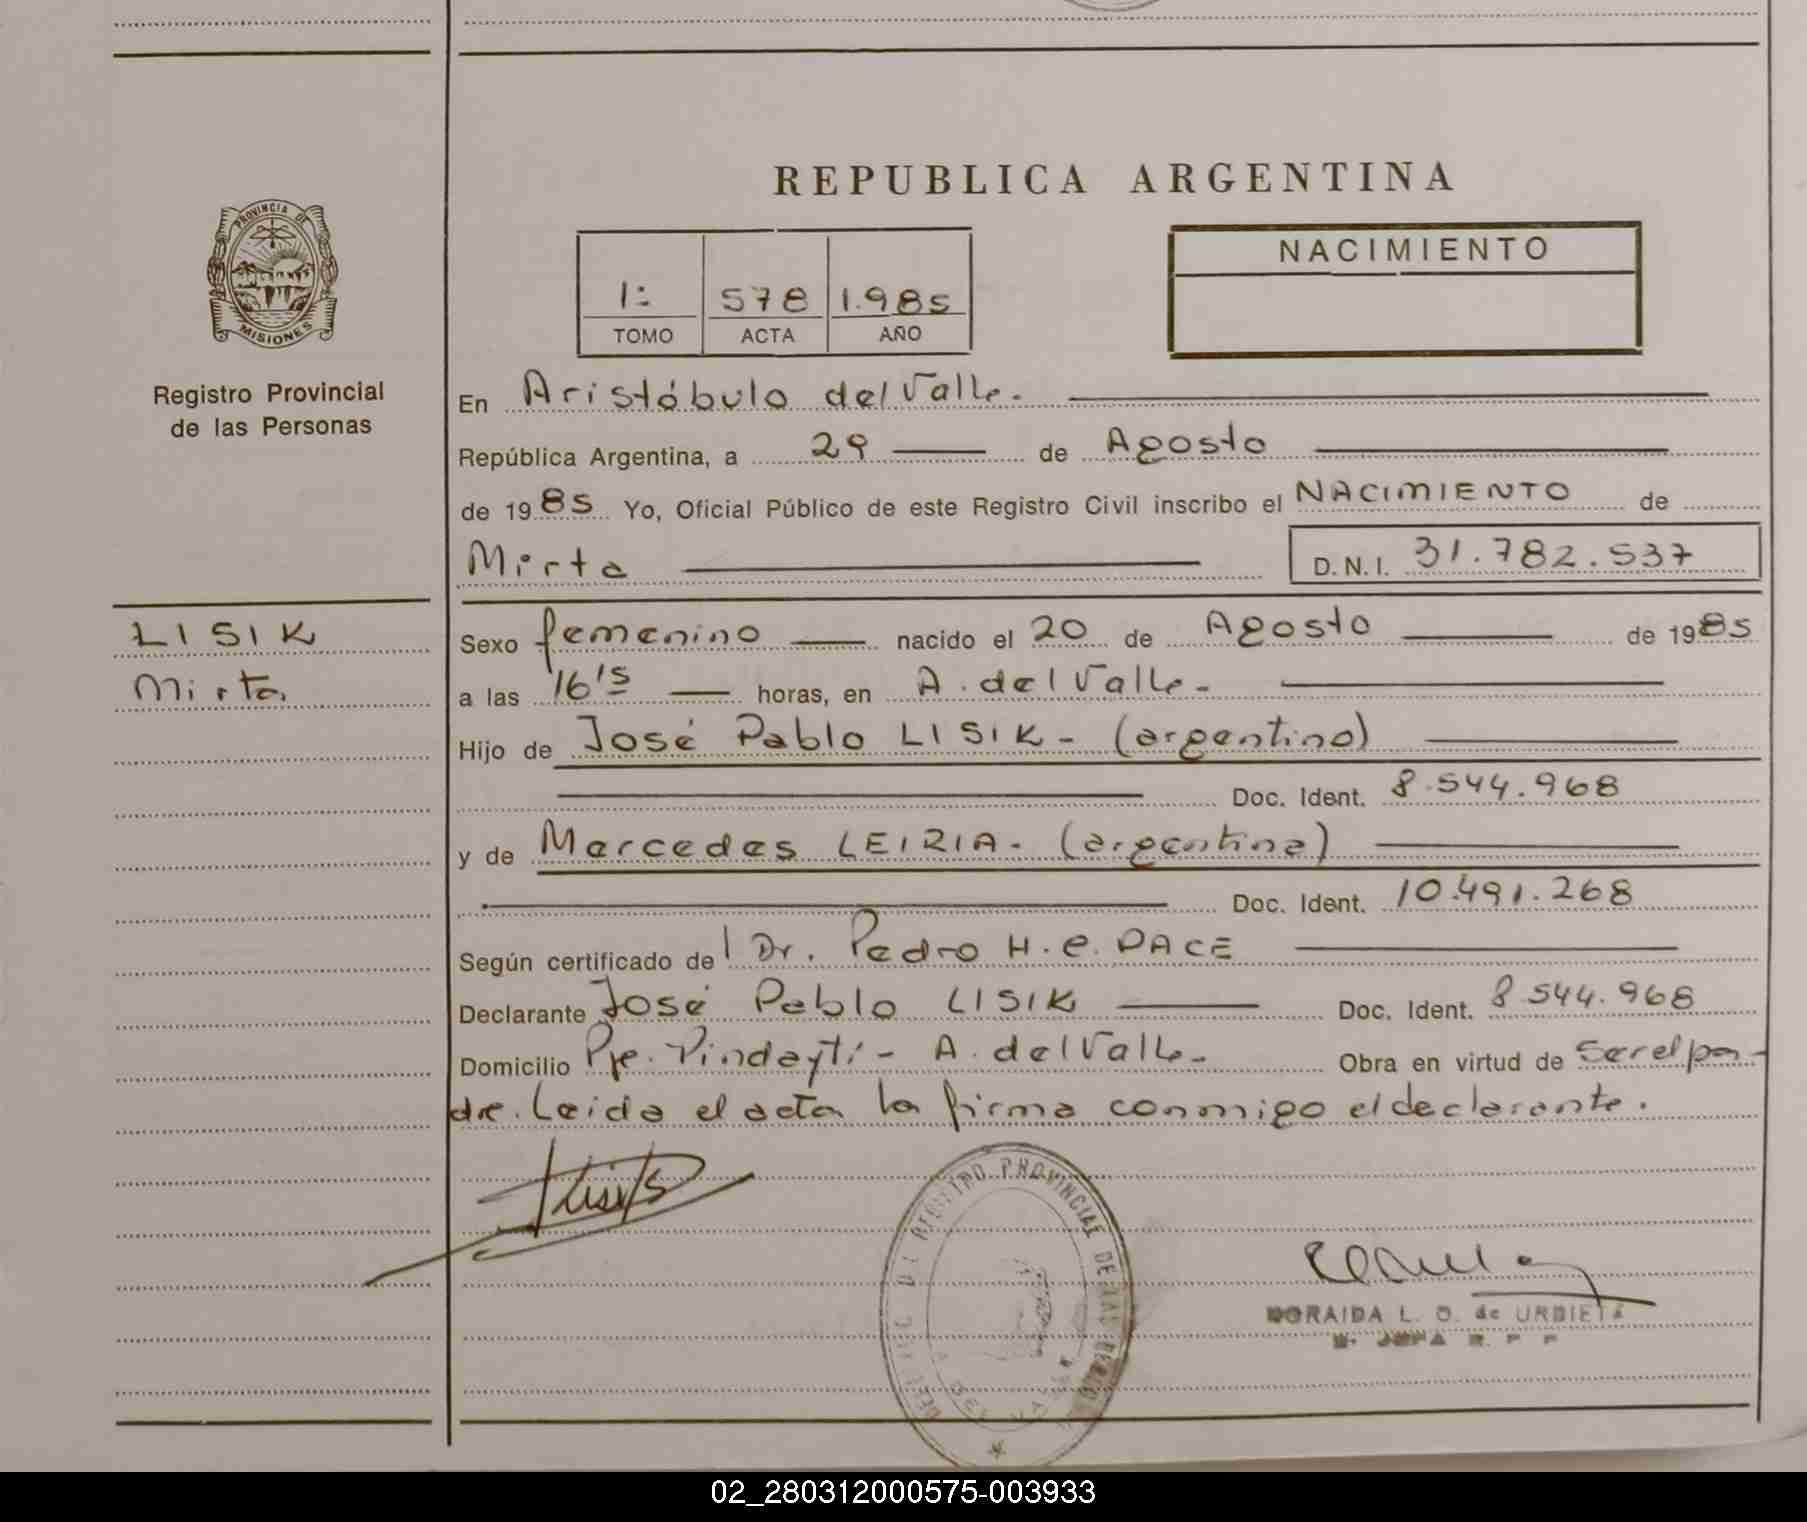 REPUBLICA ARGENTINA
PROVINCIA DE
MISIONES
Registro Provincial
de las Personas
1: 578 1.985
TOMO ACTA AÑO
NACIMIENTO
En Aristóbulo del Valle.
República Argentina, a 29 de Agosto
de 1985 Yo, Oficial Público de este Registro Civil inscribo el NACIMIENTO de
Mirta D.N.I. 31.782.537
LISIK
Mirta
Sexo femenino nacido el 20 de Agosto de 1985
a las 16'5 horas, en A. del Valle-
Hijo de José Pablo LISIK- (argentino)
Doc. Ident. 8.544.968
y de Mercedes LEIRIA- (argentina)
Doc. Ident. 10.491.268
Según certificado del Dr. Pedro H. C. PACE
Declarante José Pablo LISIK Doc. Ident. 8.544.968
Domicilio Pje. Pindaytí- A. del Valle- Obra en virtud de ser el pa-
dre. Leida el acta la firma conmigo el declarante.
REGISTRO PROVINCIAL DE LAS
DEL VALLE
L. O. de URBIETA
JEFA R. P. P
02_280312000575-003933